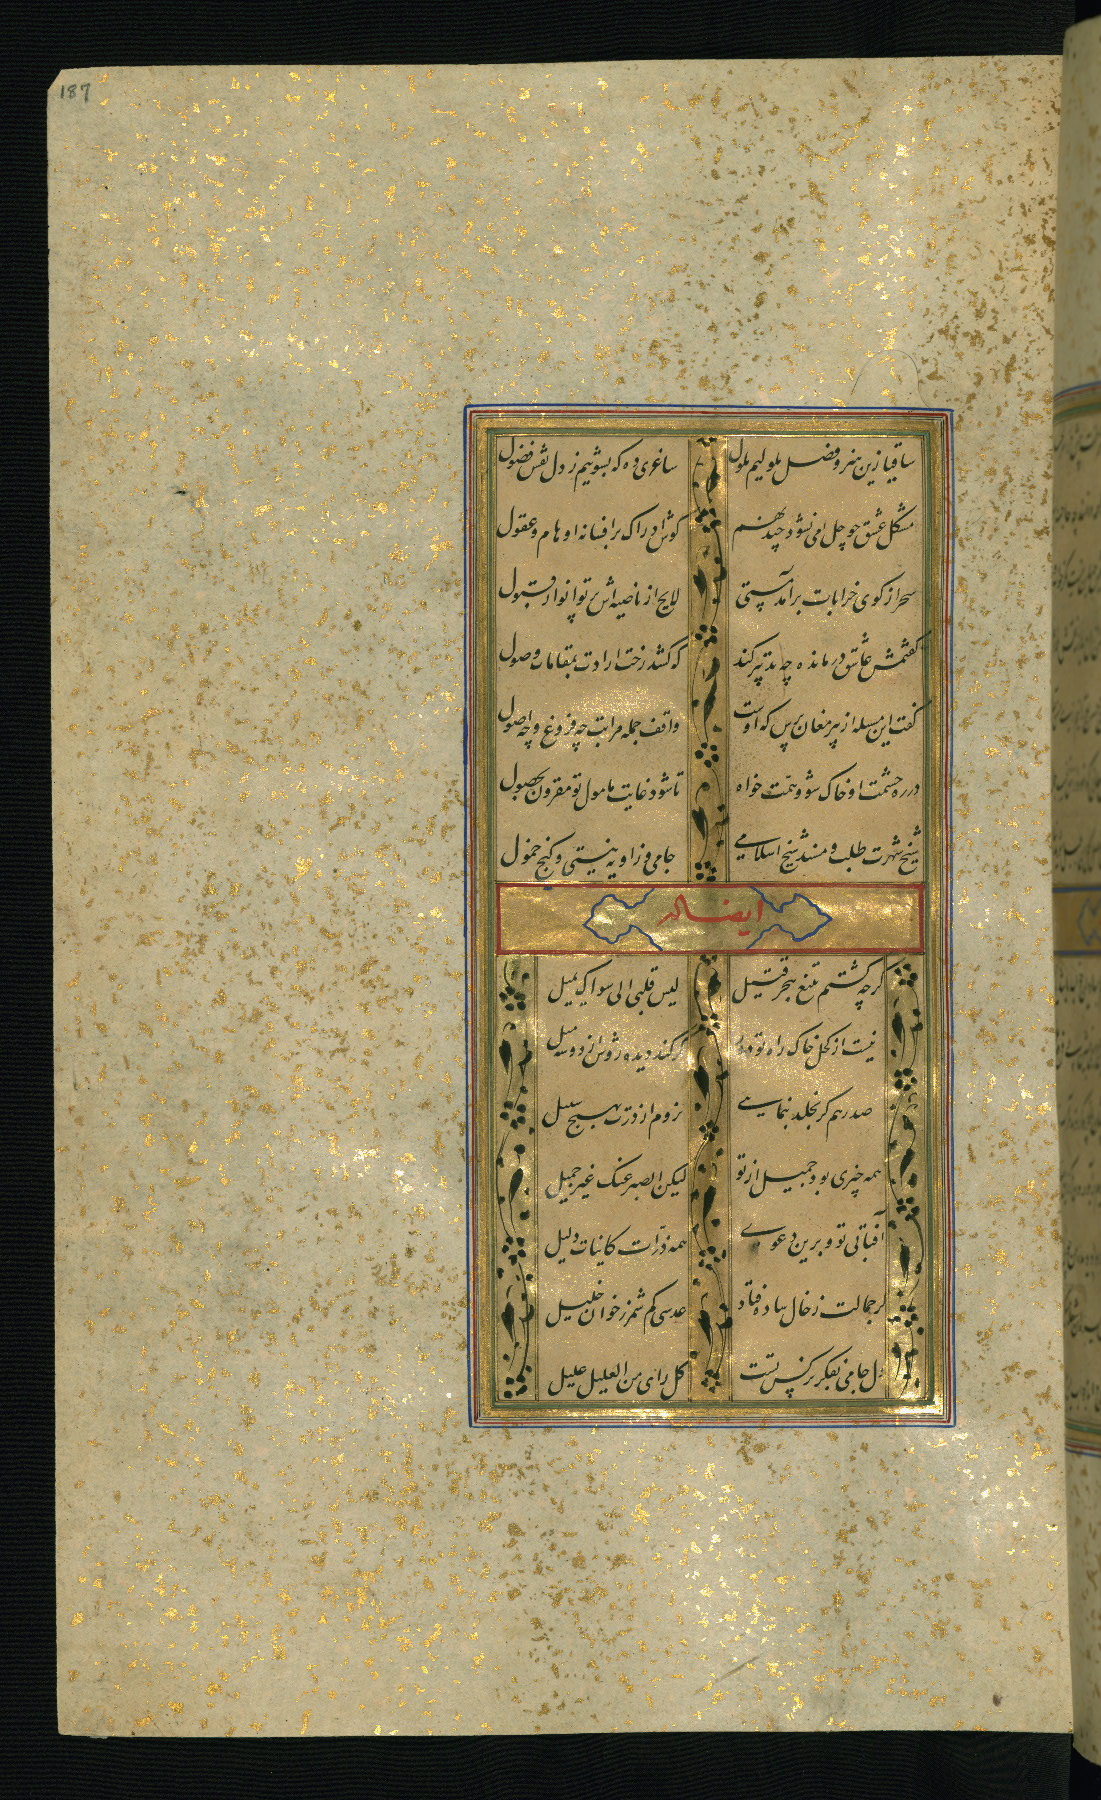 187
ساقیا زین هنر و فضل ملولیم ملول ساغری ده که بشوییم ز دل نقش فضول
مشکل عشق چو حل می نشود چند نهیم گوش ادراک بر افسانه اوهام و عقول
سحر از کوی خرابات برآمد مستی لایح از ناصیه اش پرتو انوار قبول
گفتمش عاشق درمانده چه تدبیر کند که کشد رخت ارادت بمقامات وصول
گفت این مسله از پیر مغان پرس که اوست واقف جمله مراتب چه فروغ و چه اصول
در ره حشمت او خاک شو و همت خواه تا شود غایت مامول تو مقرون بحصول
شیخ شهرت طلب و مسند شیخ اسلامی جامی و زاویه نیستی و کنج خمول
ایضا له
گرچه گشتم بتیغ هجر قتیل لیس قلبی الی سواک یمیل
نیست از کحل خاک راه تو دور گر کند دیده روشن از دو سه میل
صد رهم گر بخلد بنمایی نروم از درت بهیچ سبیل
همه چیزی بود جمیل از تو لیکن الصبر عنک غیر جمیل
آفتابی تو و برین دعوی همه ذرات کاینات دلیل
گر جمالت ز خال ساده فتاد عدسی کم شمر ز خوان خلیل
دل جامی بفکر نرگس تست کل رای من العلیل علیل